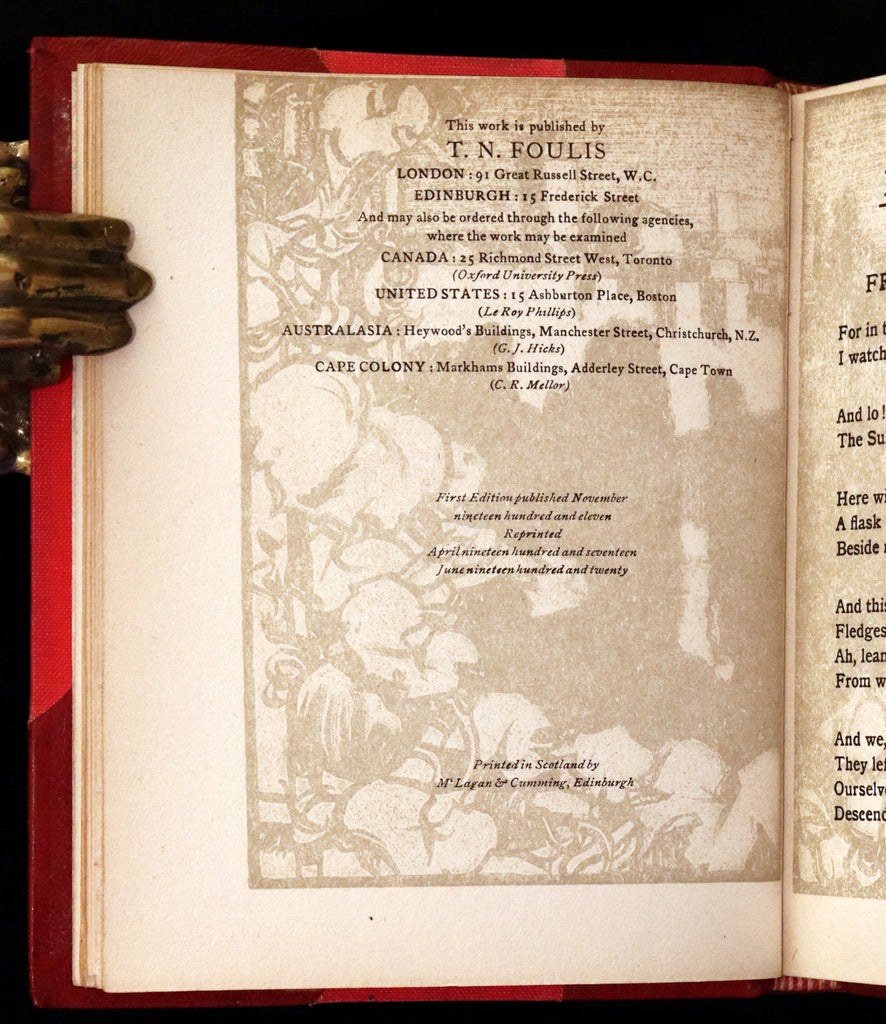 This work is published by
T. N. FOULIS
LONDON : 91 Great Russell Street, W.C.
EDINBURGH : 15 Frederick Street
And may also be ordered through the following agencies,
where the work may be examined
CANADA : 25 Richmond Street West, Toronto
(Oxford University Press)
UNITED STATES : 15 Ashburton Place, Boston
(Le Roy Phillips)
AUSTRALASIA : Heywood's Buildings, Manchester Street, Christchurch, N.Z.
(G. J. Hicks)
CAPE COLONY : Markhams Buildings, Adderley Street, Cape Town
(C. R. Mellor)
First Edition published November
nineteen hundred and eleven
Reprinted
April nineteen hundred and seventeen
June nineteen hundred and twenty
Printed in Scotland by
McLagan & Cumming, Edinburgh
For in
I watch
And lo!
The
Here
A flask
Beside
And this
Fledges
Ah,
From
And we,
They
Descend